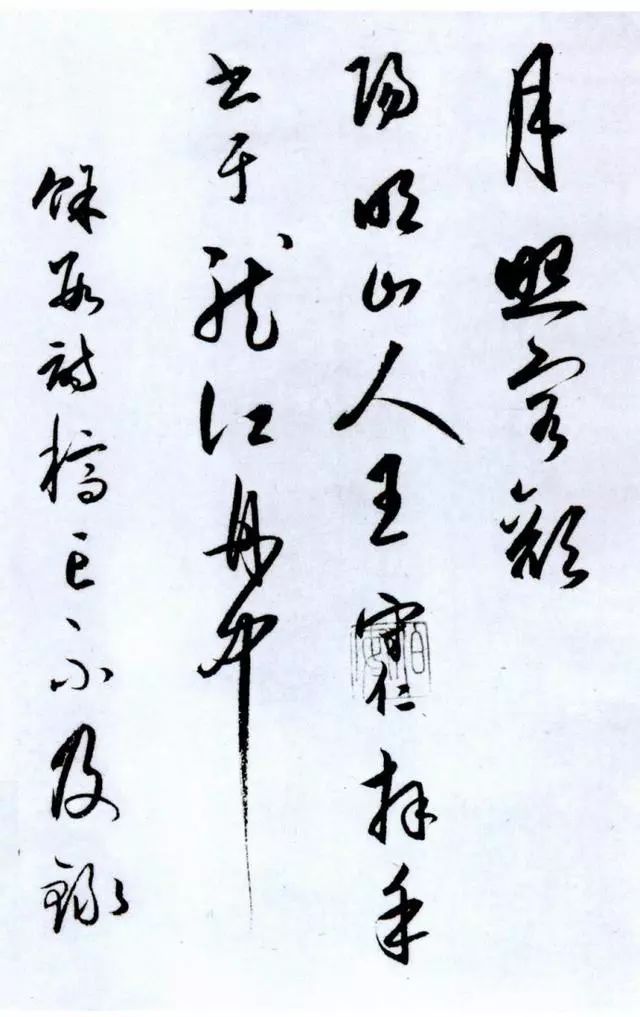 月照容顏
陽明山人王守仁拜手
書于龍江舟中
餘數詩稿亡不及錄